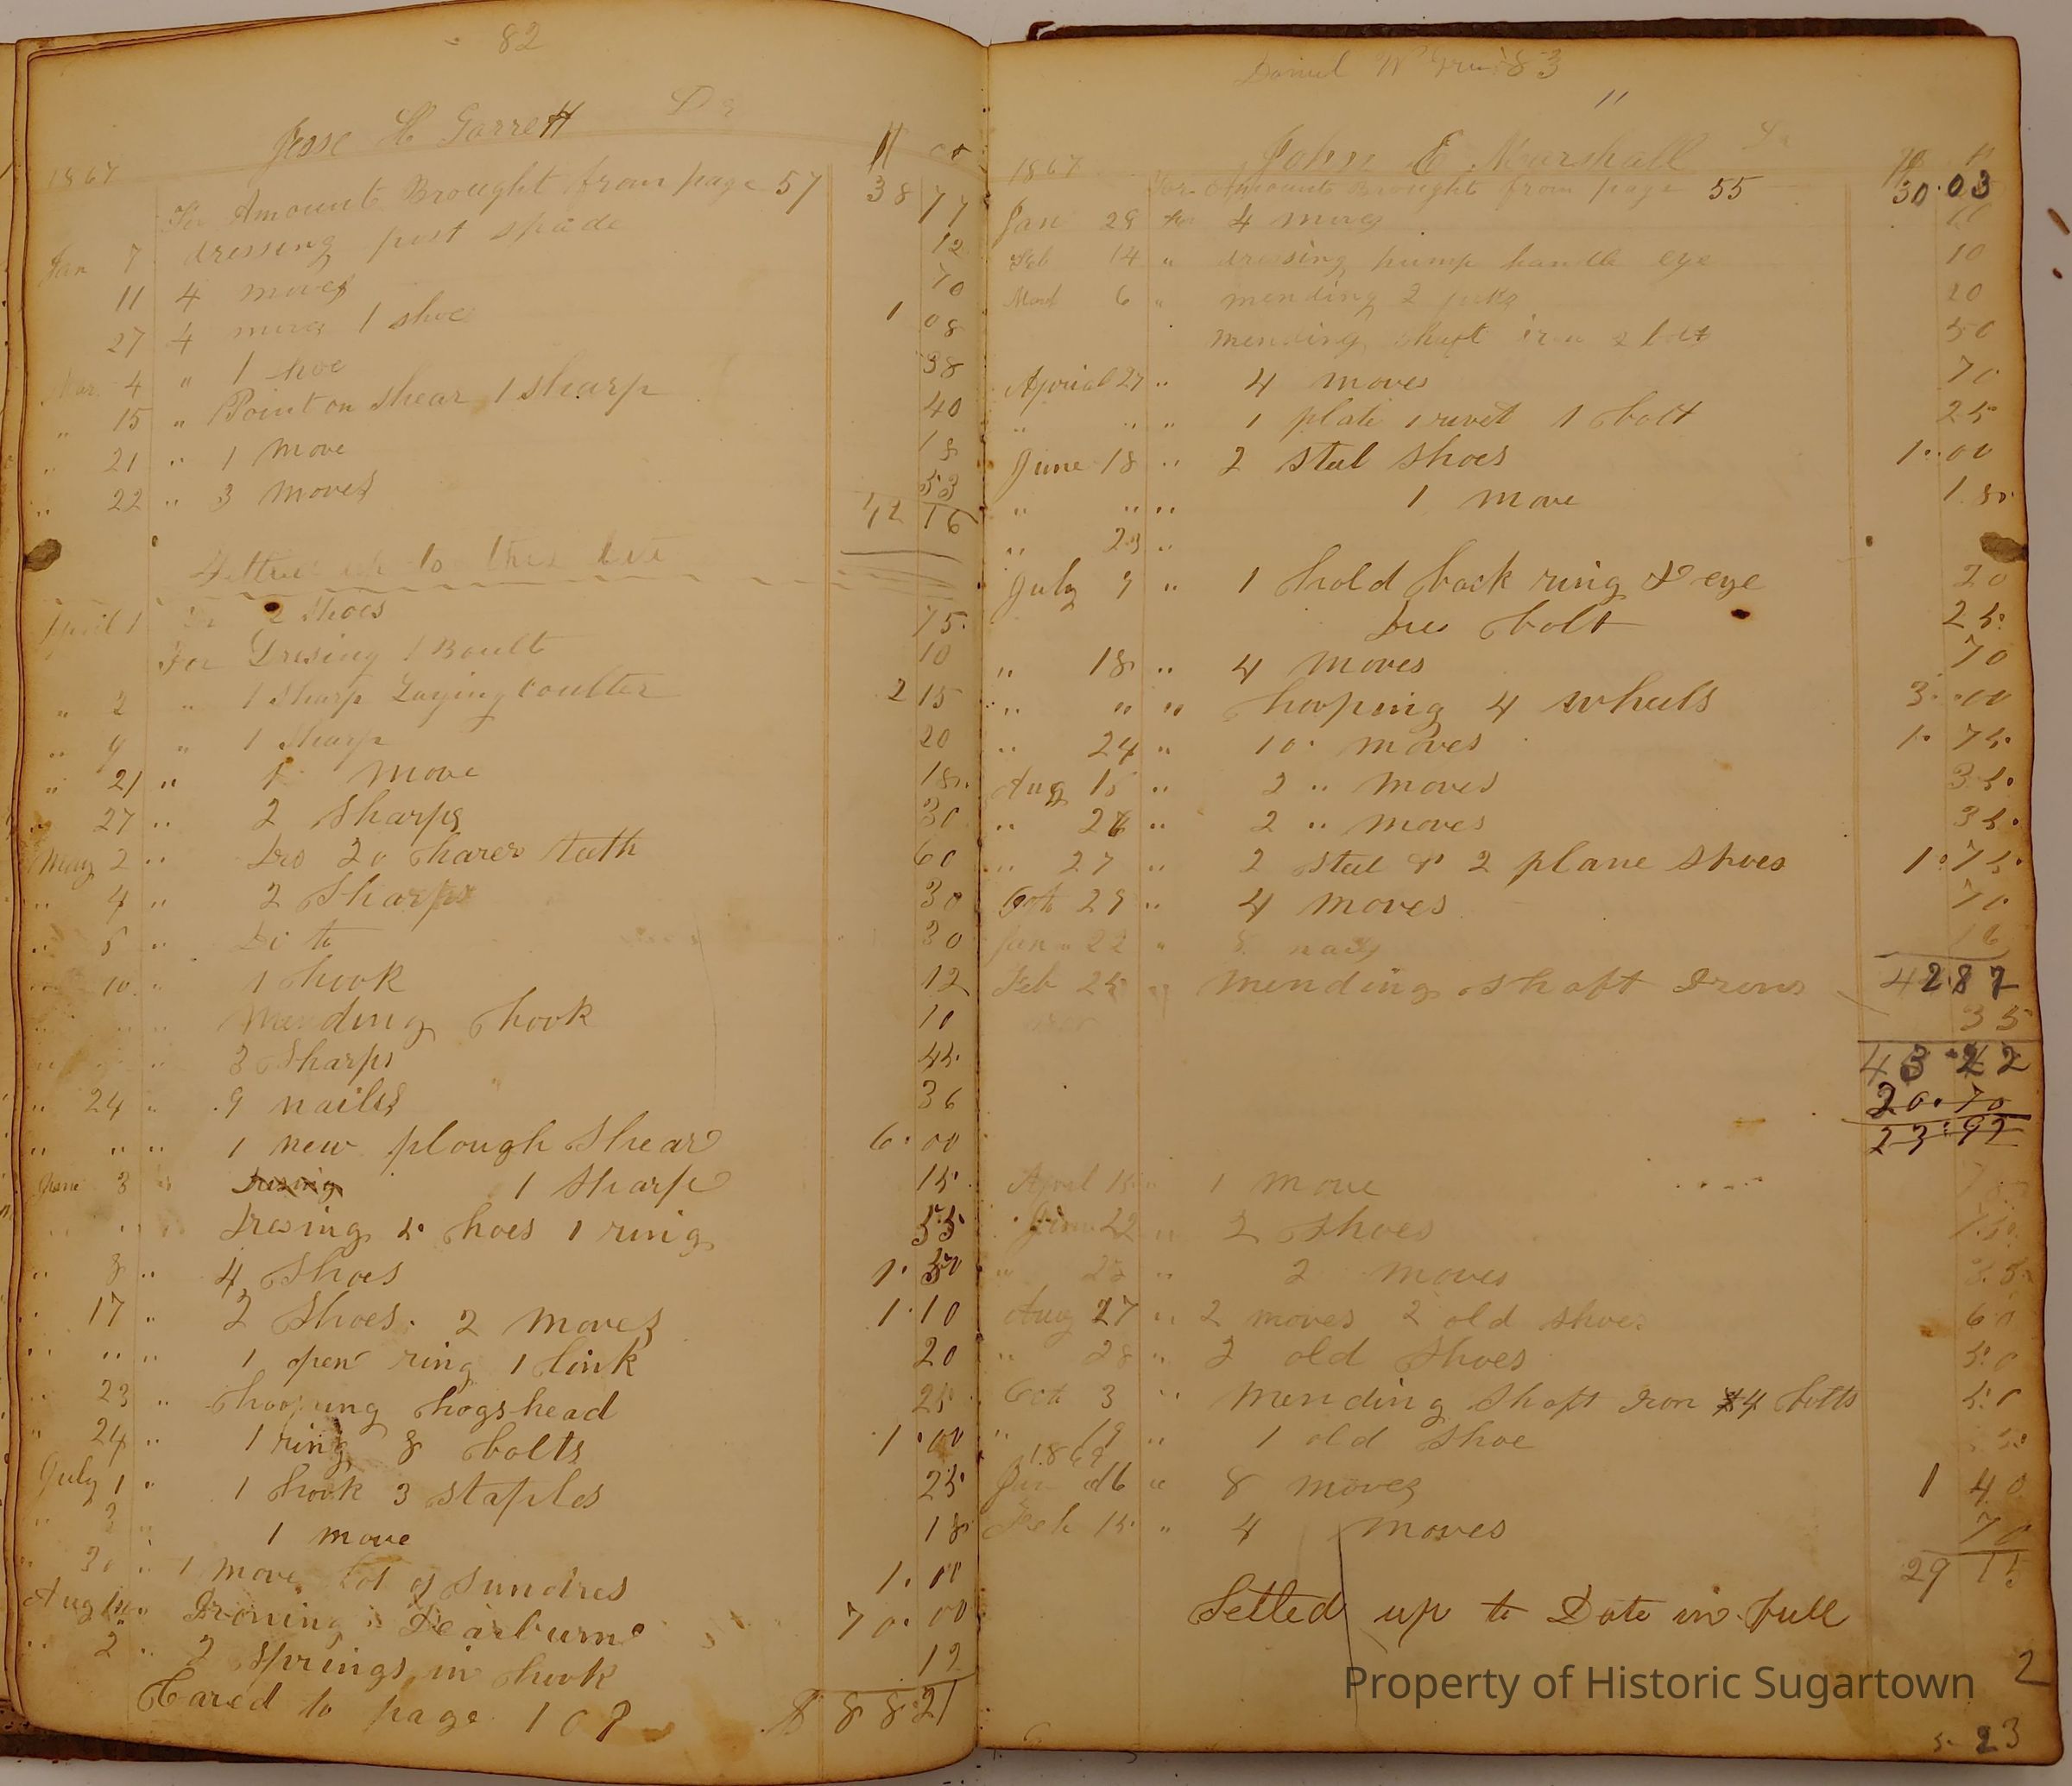 82
Jesse H. Garrett Dr
1867 $ ct
For Amount Brought from page 57 38 77
Jan 7 dressing post spade 12
11 4 moves 70
27 4 moves 1 shoe 1 08
Mar. 4 " 1 shoe 38
" 15 " Point on Shear 1 Sharp 40
" 21 " 1 Move 18
" 22 " 3 Moves 53
42 16
up to this date
April 1 For 2 Shoes 75
For Dresing 1 Boult 10
" 2 " 1 Sharp Laying Coulter 2 15
" 9 " 1 Sharp 20
" 21 " 1 move 18
" 27 " 2 Sharps 30
May 2 " Dres 20 harer teeth 60
" 4 " 2 Sharps 30
" 5 " Dito 30
" 10 " 1 hook 12
" " " Mending hook 10
" " " 3 Sharps 45
" 24 " 9 nailes 36
" " " 1 new plough Shear 6.00
June 3 " Dresing 1 Sharp 15
" " " Dresing 2 hoes 1 ring 55
" 3 " 4 Shoes 1.50
" 17 " 2 Shoes. 2 Moves 1.10
" " " 1 open ring 1 link 20
" 23 " hooping hogshead 25
" 24 " 1 ring 8 bolts 1.00
July 1 " 1 hook 3 staples 25
" 3 " 1 move 18
" 30 " 1 move Lot of Sundres 1.00
Aug " Ironing Dearburn 70.00
" 2 " 2 Springs in hook 12
Cared to page 10 $ 88.21
Daniel W 83
"
John E. Marshall Dr
1867
For Amount Brought from page 55 30.03
Jan 29 for 4 moves
Feb 14 " dressing pump handle eye 10
March 6 " mending 2 20
mending shaft iron 50
Aprial 27 " 4 moves 70
" " " 1 plate 1 rivet 1 bolt 25
June 18 " 2 steel shoes 1.00
" " " 1 move 18
" 23 "
July 9 " 1 hold back ring & eye 20
Dres bolt 25
" 18 " 4 moves 70
" " " hooping 4 wheels 3.00
" 24 " 10 moves 1.75
Aug 15 " 2 " moves 35
" 26 " 2 " moves 35
" 27 " 2 steel & 2 plane shoes 1.75
Oct 29 " 4 moves 70
Jan 22 " 8 nails
Feb 25 " Mending shaft Irons 42 87
35
43.22
20.70
23.92
April 15 " 1 move
June 22 " 2 Shoes
" 23 " 2 moves 35
Aug 27 " 2 moves 2 old shoes 60
" 28 " 2 old Shoes 50
Oct 3 " Mending Shaft Iron 4 bolts 50
" 19 " 1 old Shoe
1869
Jan 16 " 8 moves 1 40
Feb 15 " 4 moves 70
29
Setled up to Date in full
Property of Historic Sugartown
2
23